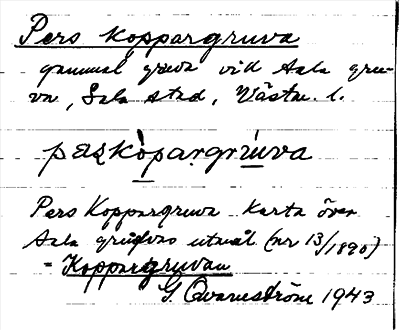 Pers koppargruva
gammal gruva vid Sala gru-
va, Sala stad, Västm. l.
pæṣkò̱paṛgrú̱va
Pers Koppargruva Karta över
Sala gruvas utmål (nr 13/1890)
= Koppargruvan
G. Qvarnström 1943